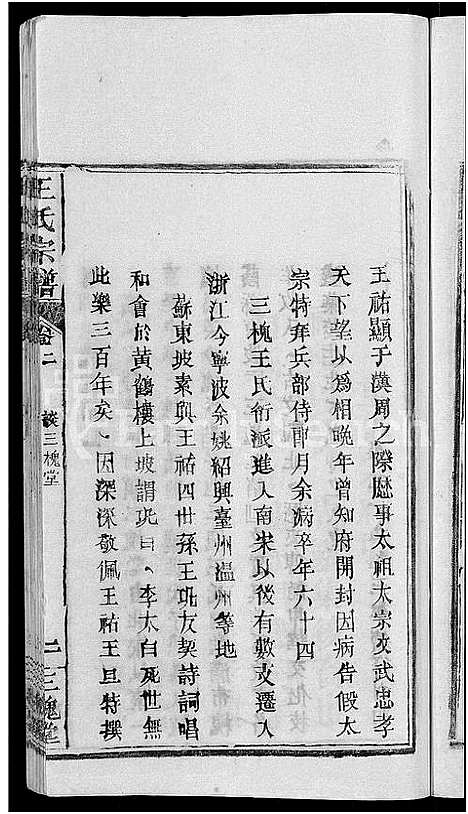 王祐顯于漢周之際歷事太祖太宗文武忠孝
天下望以為相晚年曾知府開封因病告假太
宗特拜兵部侍郎月余病卒年六十四
三槐王氏衍派進入南宋以後有數支遷入
浙江今寧波余姚紹興臺州溫州等地
蘇東坡素與王祐四世孫王鞏友契詩詞唱
和會於黃鶴樓上坡謂鞏曰、李太白死世無
此樂三百年矣、因深深敬佩王祐王旦特撰
王氏宗譜 卷二 談三槐堂 二 三槐堂